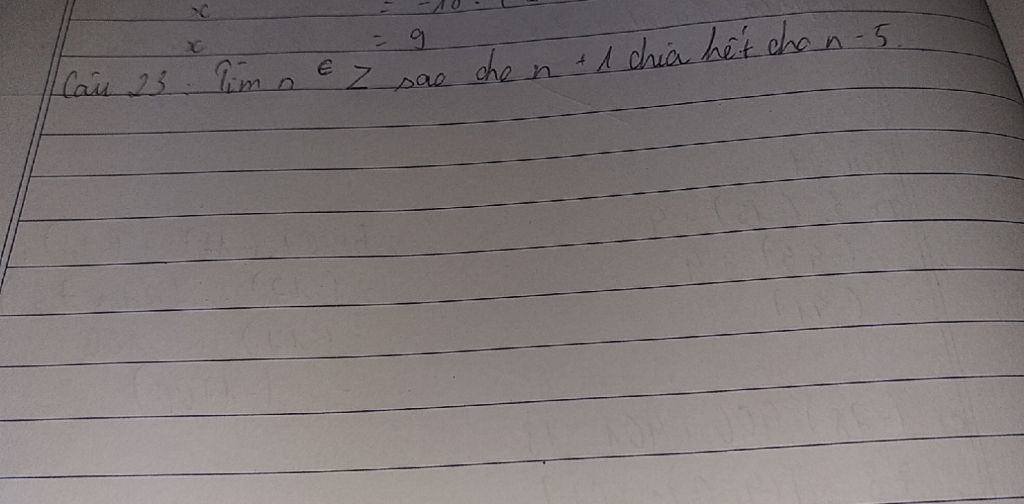 x = -10.
x = 9
Câu 23. Tìm n ∈ Z sao cho n + 1 chia hết cho n - 5.